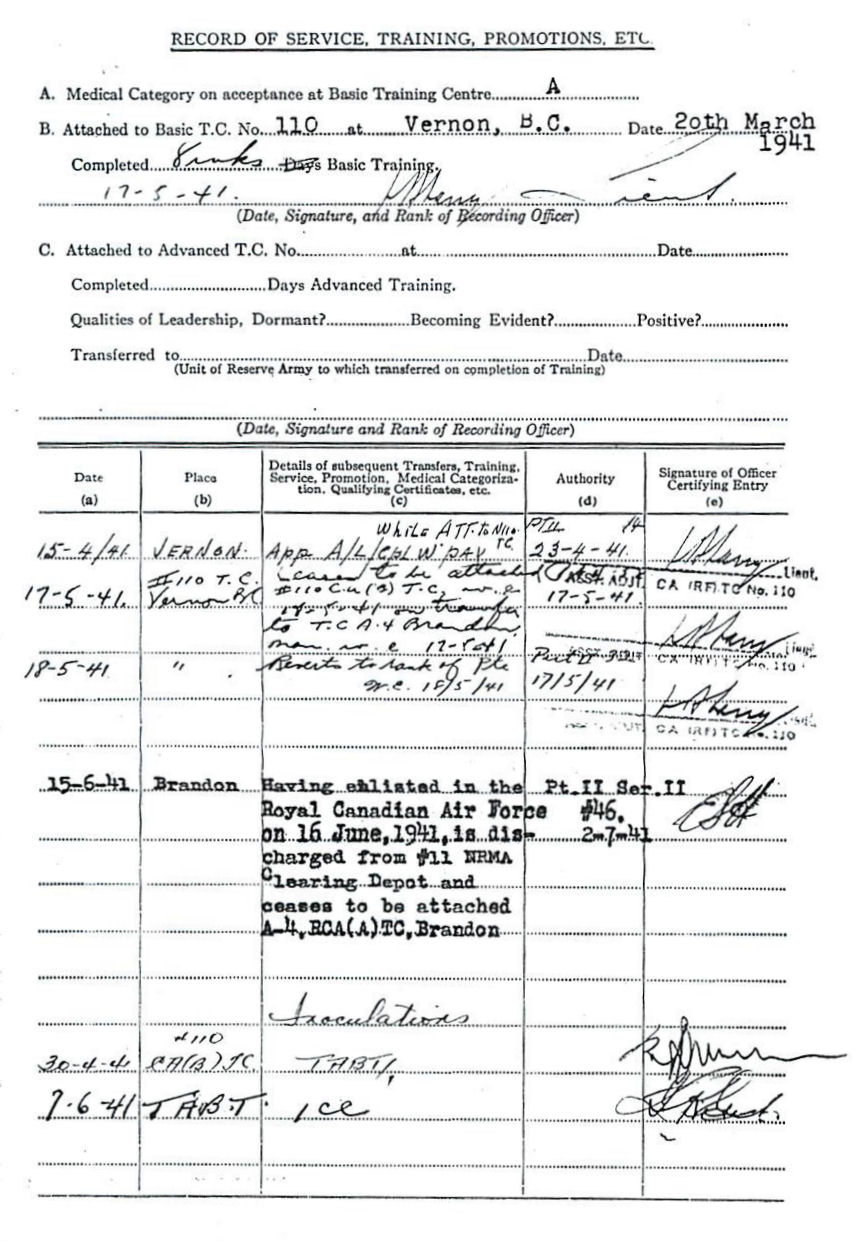 RECORD OF SERVICE, TRAINING, PROMOTIONS, ETC.
A. Medical Category on acceptance at Basic Training Centre A
B. Attached to Basic T.C. No. 110 at Vernon, B.C. Date 20th March
1941
Completed 8 wks Days Basic Training.
17-5-41. Lieut.
(Date, Signature, and Rank of Recording Officer)
C. Attached to Advanced T.C. No. at Date
Completed Days Advanced Training.
Qualities of Leadership, Dormant? Becoming Evident? Positive?
Transferred to Date
(Unit of Reserve Army to which transferred on completion of Training)
(Date, Signature and Rank of Recording Officer)
Date
(a)
Place
(b)
Details of subsequent Transfers, Training,
Service, Promotion, Medical Categoriza-
tion, Qualifying Certificates, etc.
(c)
Authority
(d)
Signature of Officer
Certifying Entry
(e)
While ATT. to N110 TC
15-4/41 VERNON. App A/L/CPL W PAY 23-4-41.
Lieut.
ASST. ADJT. CA (RF) TC No. 110
17-5-41. #110 T.C. Vernon BC ceased to be attached 17-5-41.
#110 C.A.(B) T.C. w.e.
17-5-41 on transfer
to T.C A.4 Brandon,
Man. w.e 17-5-41
Lieut.
CA (RF) TC No. 110
18-5-41 " Reverts to rank of Pte Part II
w.e. 18/5/41 17/5/41
CA (RF) TC No. 110
15-6-41 Brandon Having enlisted in the Pt.II Ser.II
Royal Canadian Air Force #46.
on 16 June,1941,is dis- 2-7-41
charged from #11 NRMA
Clearing Depot and
ceases to be attached
A-4,RCA(A)TC,Brandon
Inoculations
#110
30-4-41 CA(B)TC. TABT,
7-6-41 TABT. 1cc